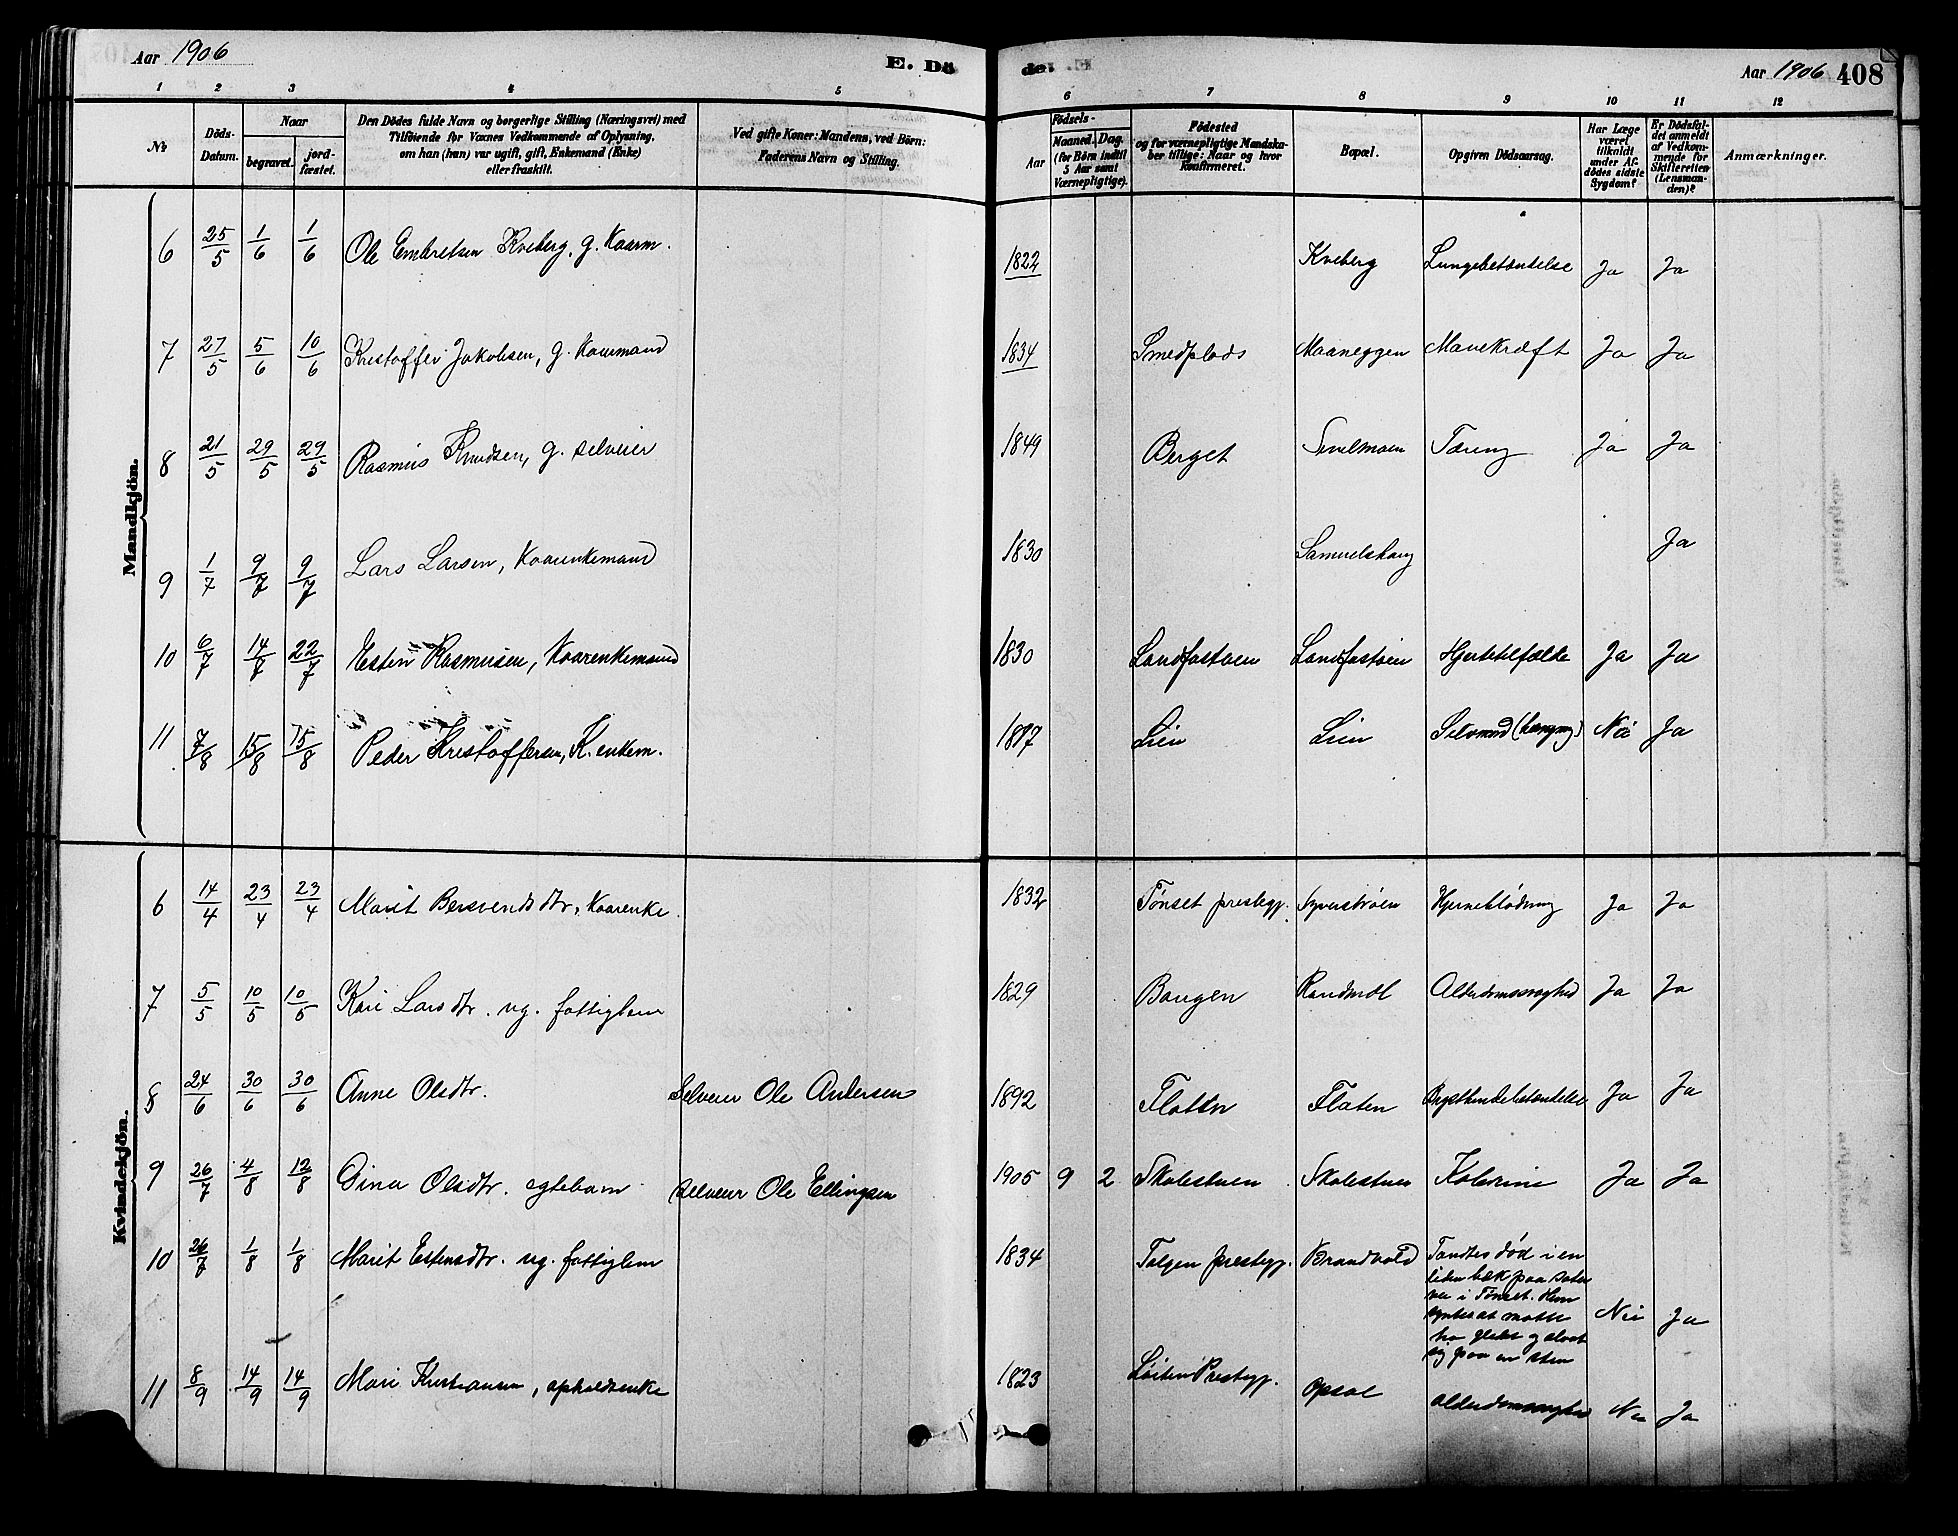 Aar 1906 E. Dö de. Aar 1906 408
1 2 3 4 5 6 7 8 9 10 11 12
No
Döds-Datum.
Naar
begravet.
jord-fæstet.
Den Dödes fulde Navn og borgerlige Stilling (Næringsvei) med
Tilföiende for Voxnes Vedkommende af Oplysning,
om han (hun) var ugift, gift, Enkemand (Enke)
eller fraskilt.
Ved gifte Koner: Mandens, ved Börn:
Faderens Navn og Stilling.
Födsels-
Aar
Maaned. Dag.
(for Börn indtil
5 Aar samt
Værnepligtige).
Födested
og for værnepligtige Mandska-
ber tillige: Naar og hvor
Konfirmeret.
Bopæl.
Opgiven Dödsaarsag.
Har Læge
været
tilkaldt
under Af-
dödes sidste
Sygdom?
Er Dödsfal-
det anmeldt
af Vedkom-
mende for
Skifteretten
(Lensman-
den)?
Anmærkninger.
Mandkjön.
6 25/5 1/6 1/6 Ole Embretsen Kveberg, g. Kaarm. 1822 Kveberg Lungebetændelse Ja Ja
7 27/5 5/6 10/6 Kristoffer Jakobsen, g. Kaarmand 1834 Smedplads Maaneggen Mavekræft Ja Ja
8 21/5 29/5 29/5 Rasmus Knudsen, g. selveier 1849 Berget Tæring Ja Ja
9 1/7 9/7 9/7 Lars Larsen, Kaarenkemand 1830 Samuelshaug Ja
10 6/7 14/7 22/7 Esten Rasmusen, Kaarenkemand 1830 Landfastøen Landfastøen Hjertetilfælde Ja Ja
11 7/8 15/8 15/8 Peder Kristoffersen, K. enkem. 1817 Lien Lien Selvmord (hængning) Nei Ja
Kvindekjön.
6 14/4 23/4 23/4 Marit Bersvendsdtr, Kaarenke. 1832 Tønset prestegj. Hjerneblødning Ja Ja
7 5/5 10/5 10/5 Kari Larsdtr. ug. fattiglem 1829 Bangen Randmæl Alderdomssvaghed Ja Ja
8 24/6 30/6 30/6 Anne Olsdtr. Selveier Ole Andersen 1892 Flaten Flaten Brysthindebetændelse Ja Ja
9 26/7 4/8 12/8 Dina Olsdtr. ægtebarn selveier Ole Ellingsen 1905 9 2 Skolestuen Skolestuen Kolerine Ja Ja
10 26/7 1/8 1/8 Marit Estensdtr. ug. fattiglem 1834 Tolgen prestegj. Brandvold Fandtes død i en
liden bæk paa sæter
vei i Tønset. Hun
syntes at maatte
ha glidt og slaat
sig paa en sten Nei Ja
11 8/9 14/9 14/9 Mari Kristiansen, opholdsenke 1823 Løiten Prestegj. Opsal alderdomssvaghed Nei Ja